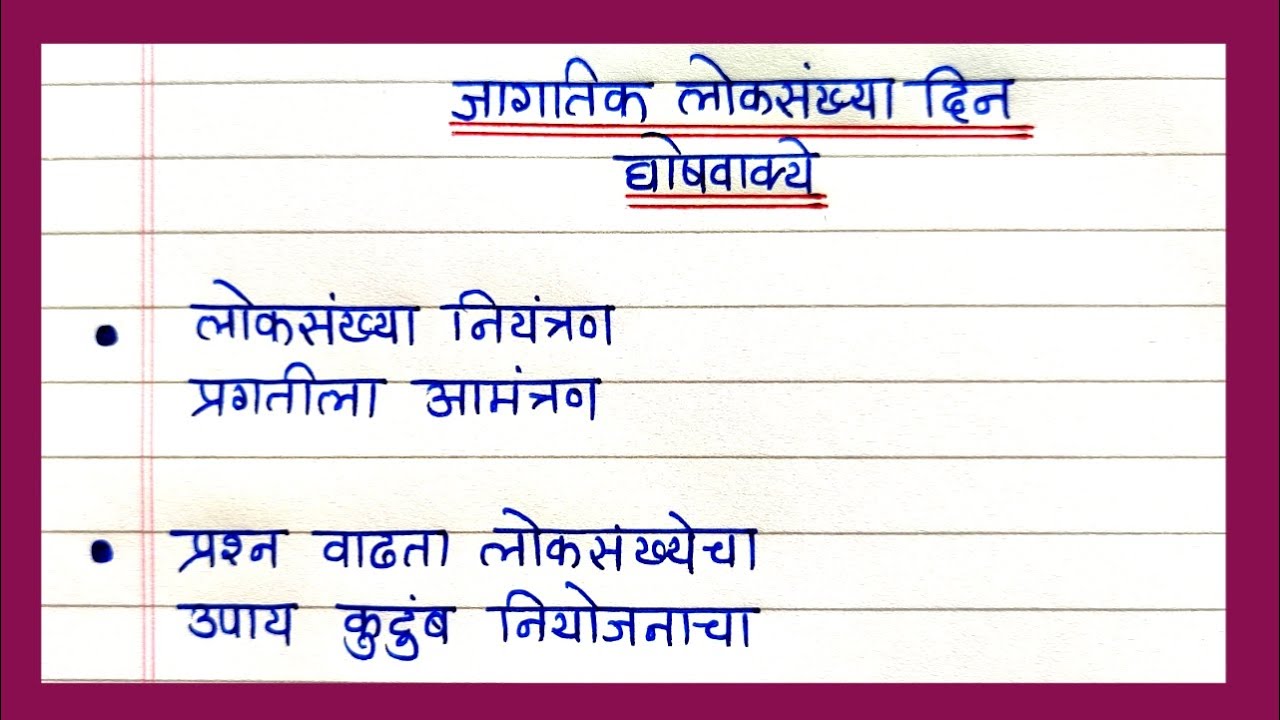 जागतिक लोकसंख्या दिन
घोषवाक्ये
• लोकसंख्या नियंत्रण
प्रगतीला आमंत्रण
• प्रश्न वाढता लोकसंख्येचा
उपाय कुटुंब नियोजनाचा